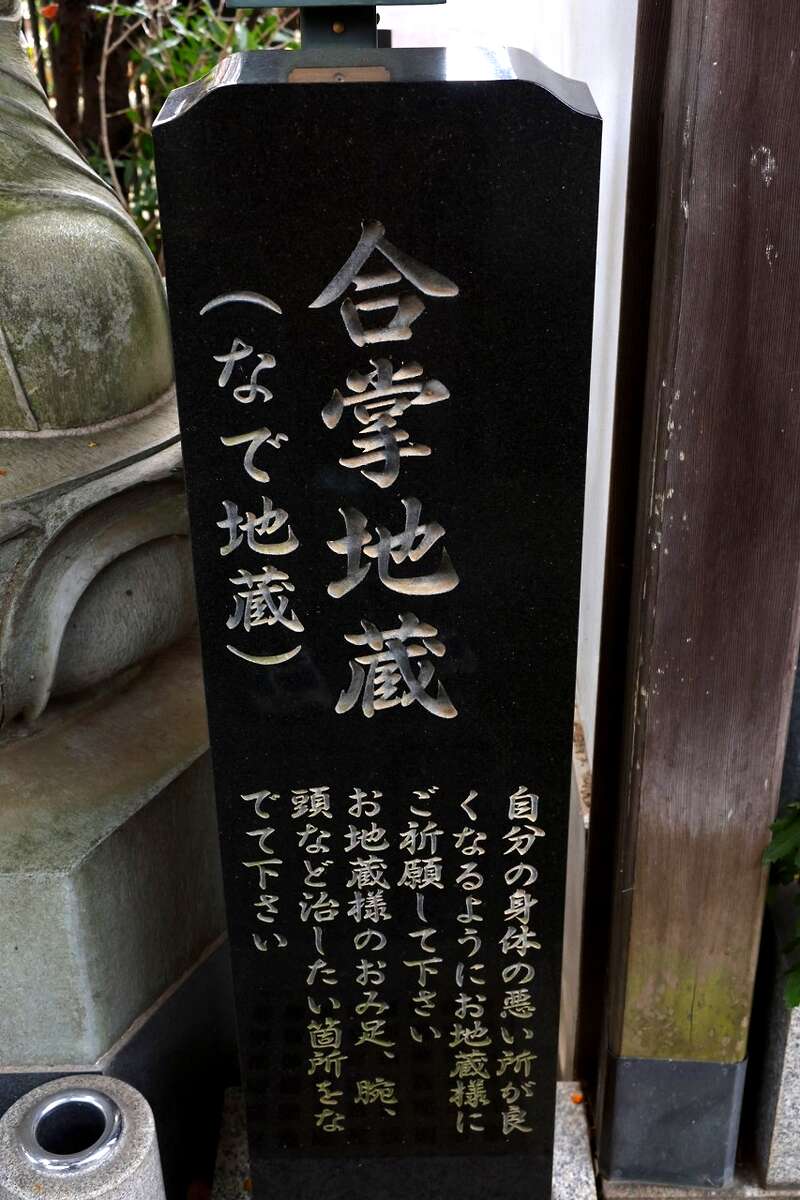 合掌地蔵
（なで地蔵）
自分の身体の悪い所が良
くなるようにお地蔵様に
ご祈願して下さい
お地蔵様のおみ足、腕、
頭など治したい箇所をな
でて下さい